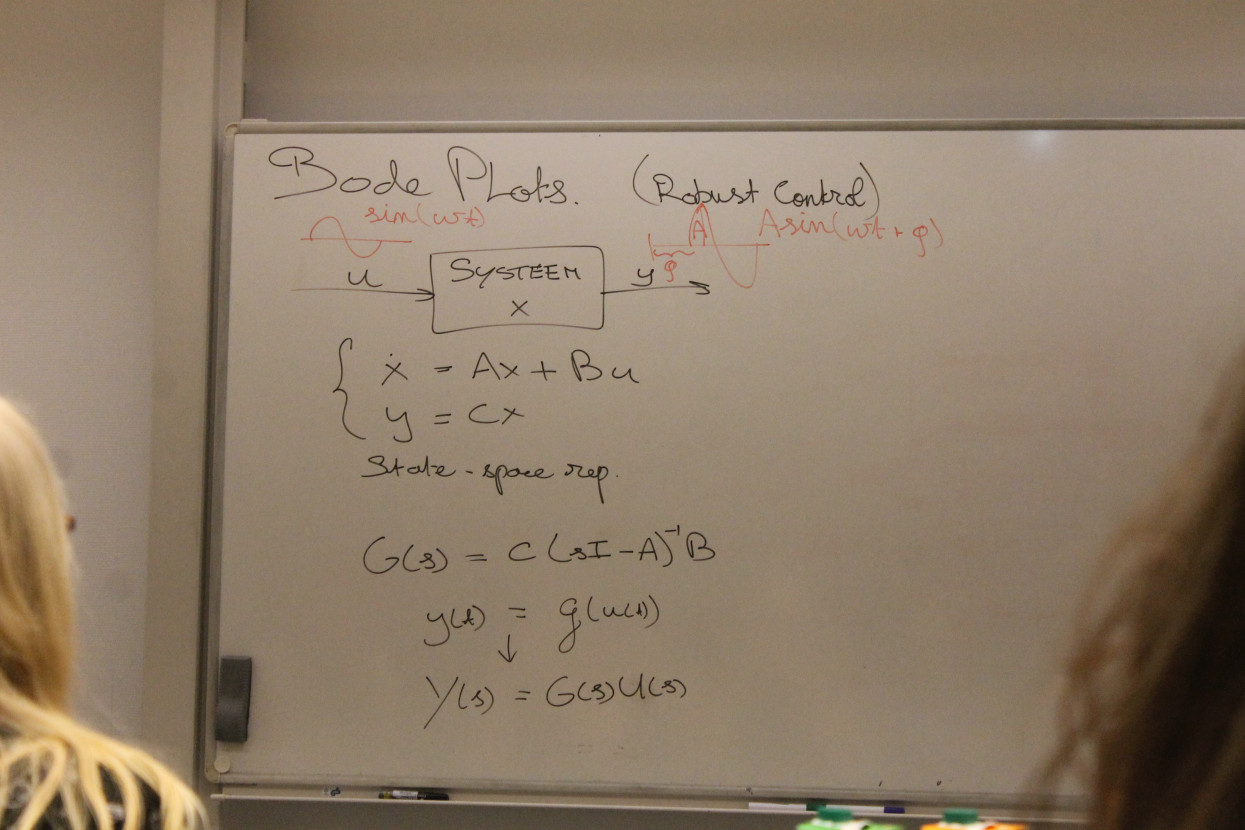 Bode Plots. (Robust Control)
sin(ωt) A Asin(ωt + φ)
φ
u SYSTEEM y
x
ẋ = Ax + Bu
y = Cx
State-space rep.
G(s) = C(sI-A)⁻¹B
y(t) = g(u(t))
↓
Y(s) = G(s)U(s)